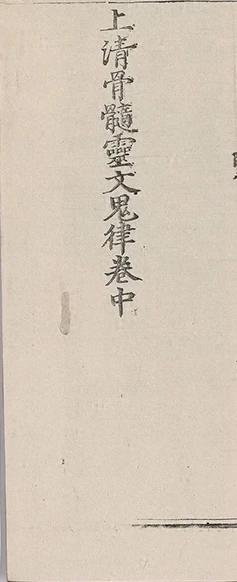 上清骨髓靈文鬼律卷中